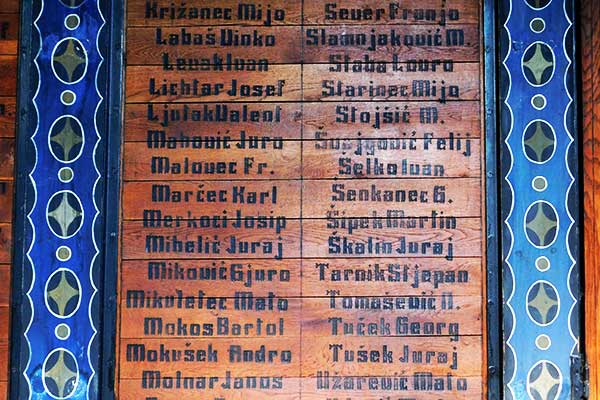 Križanec Mijo
Labaš Vinko
Levak Ivan
Lichtar Josef
Ljutak Valent
Mahović Juro
Malovec Fr.
Marčec Karl
Merkoci Josip
Mihelić Juraj
Miković Gjuro
Mikuletec Mato
Mokos Bartol
Mokušek Andro
Molnar Janos
Sever Franjo
Slamojaković M.
Slaba Lovro
Starinec Mijo
Stojšić M.
Felij
Šelko Ivan
Šenkanec G.
Šipek Martin
Škalin Juraj
Tarnik Stjepan
Tomašević N.
Tuček Georg
Tušek Juraj
Užarević Mato